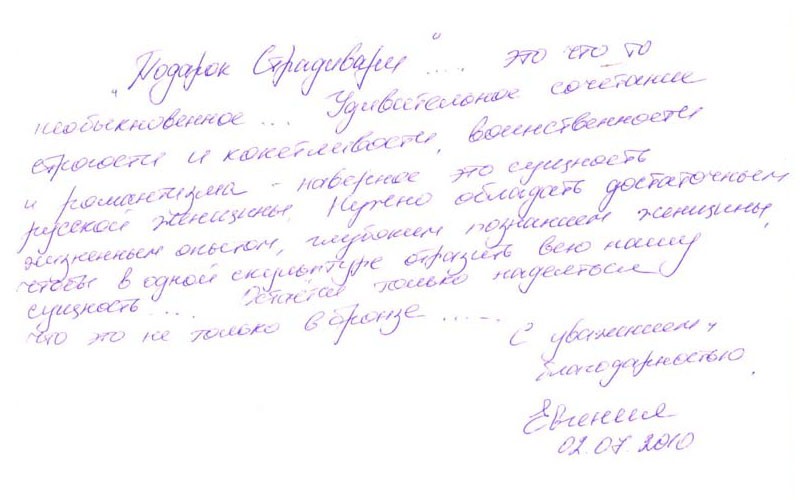 "Подарок Страдивари" .... это что-то
необыкновенное... Удивительное сочетание
строгости и кокетливости, воинственности
и романтизма - наверное это сущность
русской женщины. Нужно обладать достаточным
жизненным опытом, глубоким познанием женщины,
чтобы в одной скульптуре отразить всю нашу
сущность.... Остаётся только надеяться,
что это не только в бронзе .....
С уважением,
благодарностью.
Евгения
02.07.2010